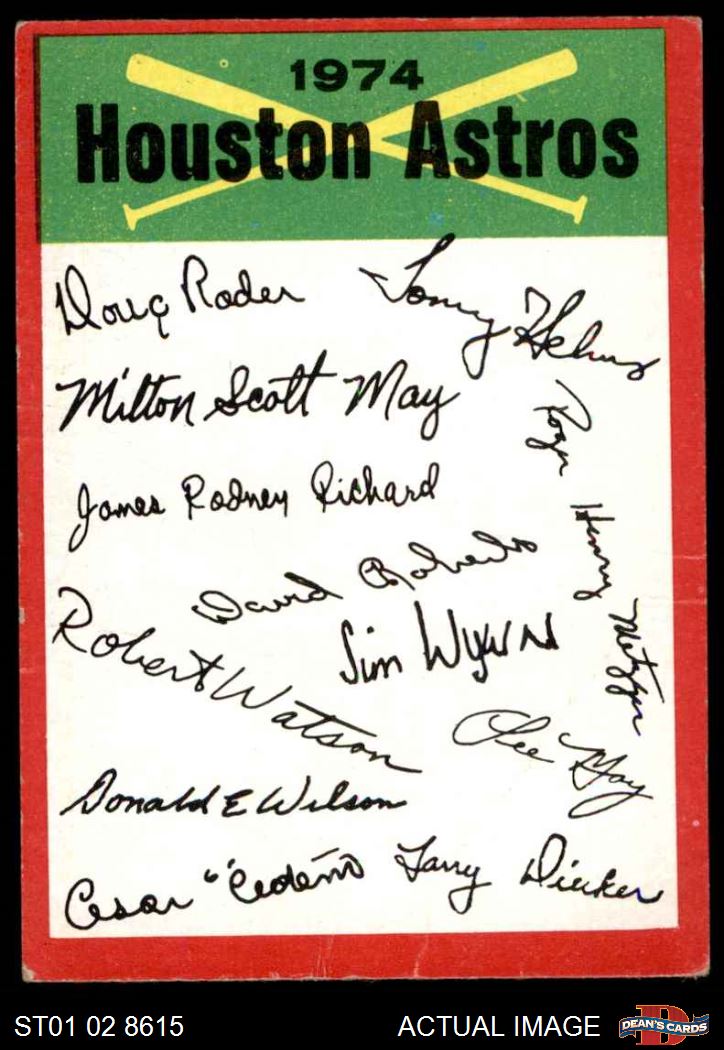 1974
Houston Astros
Doug Rader
Tommy Helms
Milton Scott May
Roger Henry Metzger
James Rodney Richard
David Roberts
Jim Wynn
Robert Watson
Lee May
Donald E Wilson
Cesar "Cedeño
Larry Dierker
ST01 02 8615
ACTUAL IMAGE
D
DEAN'S CARDS